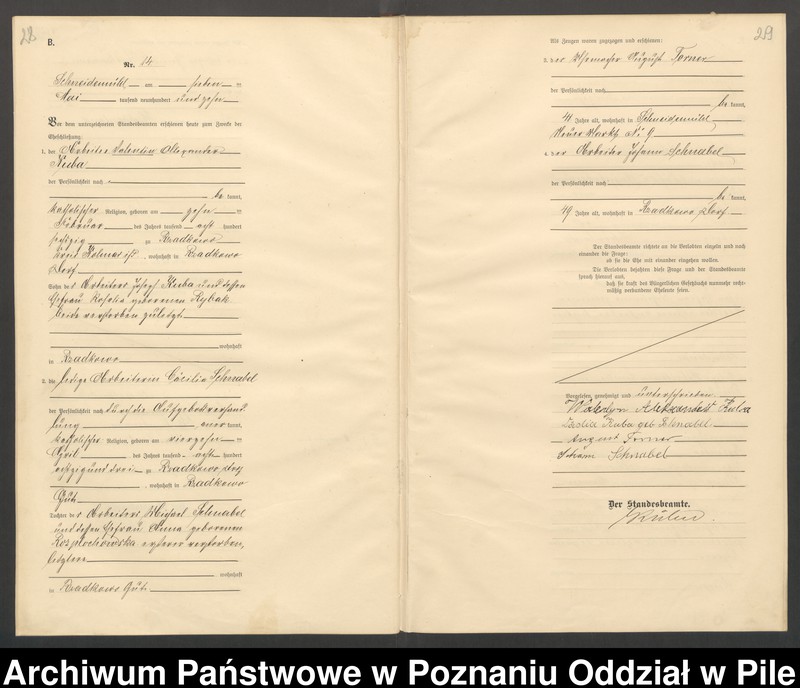 28
B.
Nr. 14
Schneidemühl am sieben ten
Mai tausend neunhundert und zehn
Vor dem unterzeichneten Standesbeamten erschienen heute zum Zwecke der
Eheschließung:
1. der Arbeiter Valentin Alexander
Kuba
der Persönlichkeit nach
be kannt,
katholischer Religion, geboren am zehn ten
Februar des Jahres tausend acht hundert
sechzig zu Radkowo
Kreis Kolmar i/P., wohnhaft in Radkowo
Dorf
Sohn des Arbeiters Josef Kuba und dessen
Ehefrau Rosalie geborenen Rybak
beide verstorben zuletzt
wohnhaft
in Radkowo
2. die ledige Arbeiterin Cäcilia Schnabel
der Persönlichkeit nach durch die Aufgebotsverhand
lung aner kannt,
katholischer Religion, geboren am vierzehn ten
April des Jahres tausend acht hundert
achtzig und drei zu Radkowo
, wohnhaft in Radkowo
Gut
Tochter des Arbeiters Michael Schnabel
und dessen Ehefrau Anna geborenen
ersterer verstorben,
letztere
wohnhaft
in Radkowo Gut
Als Zeugen waren zugezogen und erschienen:
3. der August Forner
der Persönlichkeit nach
be kannt,
41 Jahre alt, wohnhaft in Schneidemühl
Neuer Markt Nr. 9
4. der Arbeiter Johann Schnabel
der Persönlichkeit nach
be kannt,
49 Jahre alt, wohnhaft in Radkowo Dorf
Der Standesbeamte richtete an die Verlobten einzeln und nach
einander die Frage:
ob sie die Ehe mit einander eingehen wollen.
Die Verlobten bejahten diese Frage und der Standesbeamte
sprach hierauf aus,
daß sie kraft des Bürgerlichen Gesetzbuchs nunmehr recht-
mäßig verbundene Eheleute seien.
Vorgelesen, genehmigt und unterschrieben
Kuba
Kuba geb Schnabel
August Forner
Schnabel
Der Standesbeamte.
Archiwum Państwowe w Poznaniu Oddział w Pile